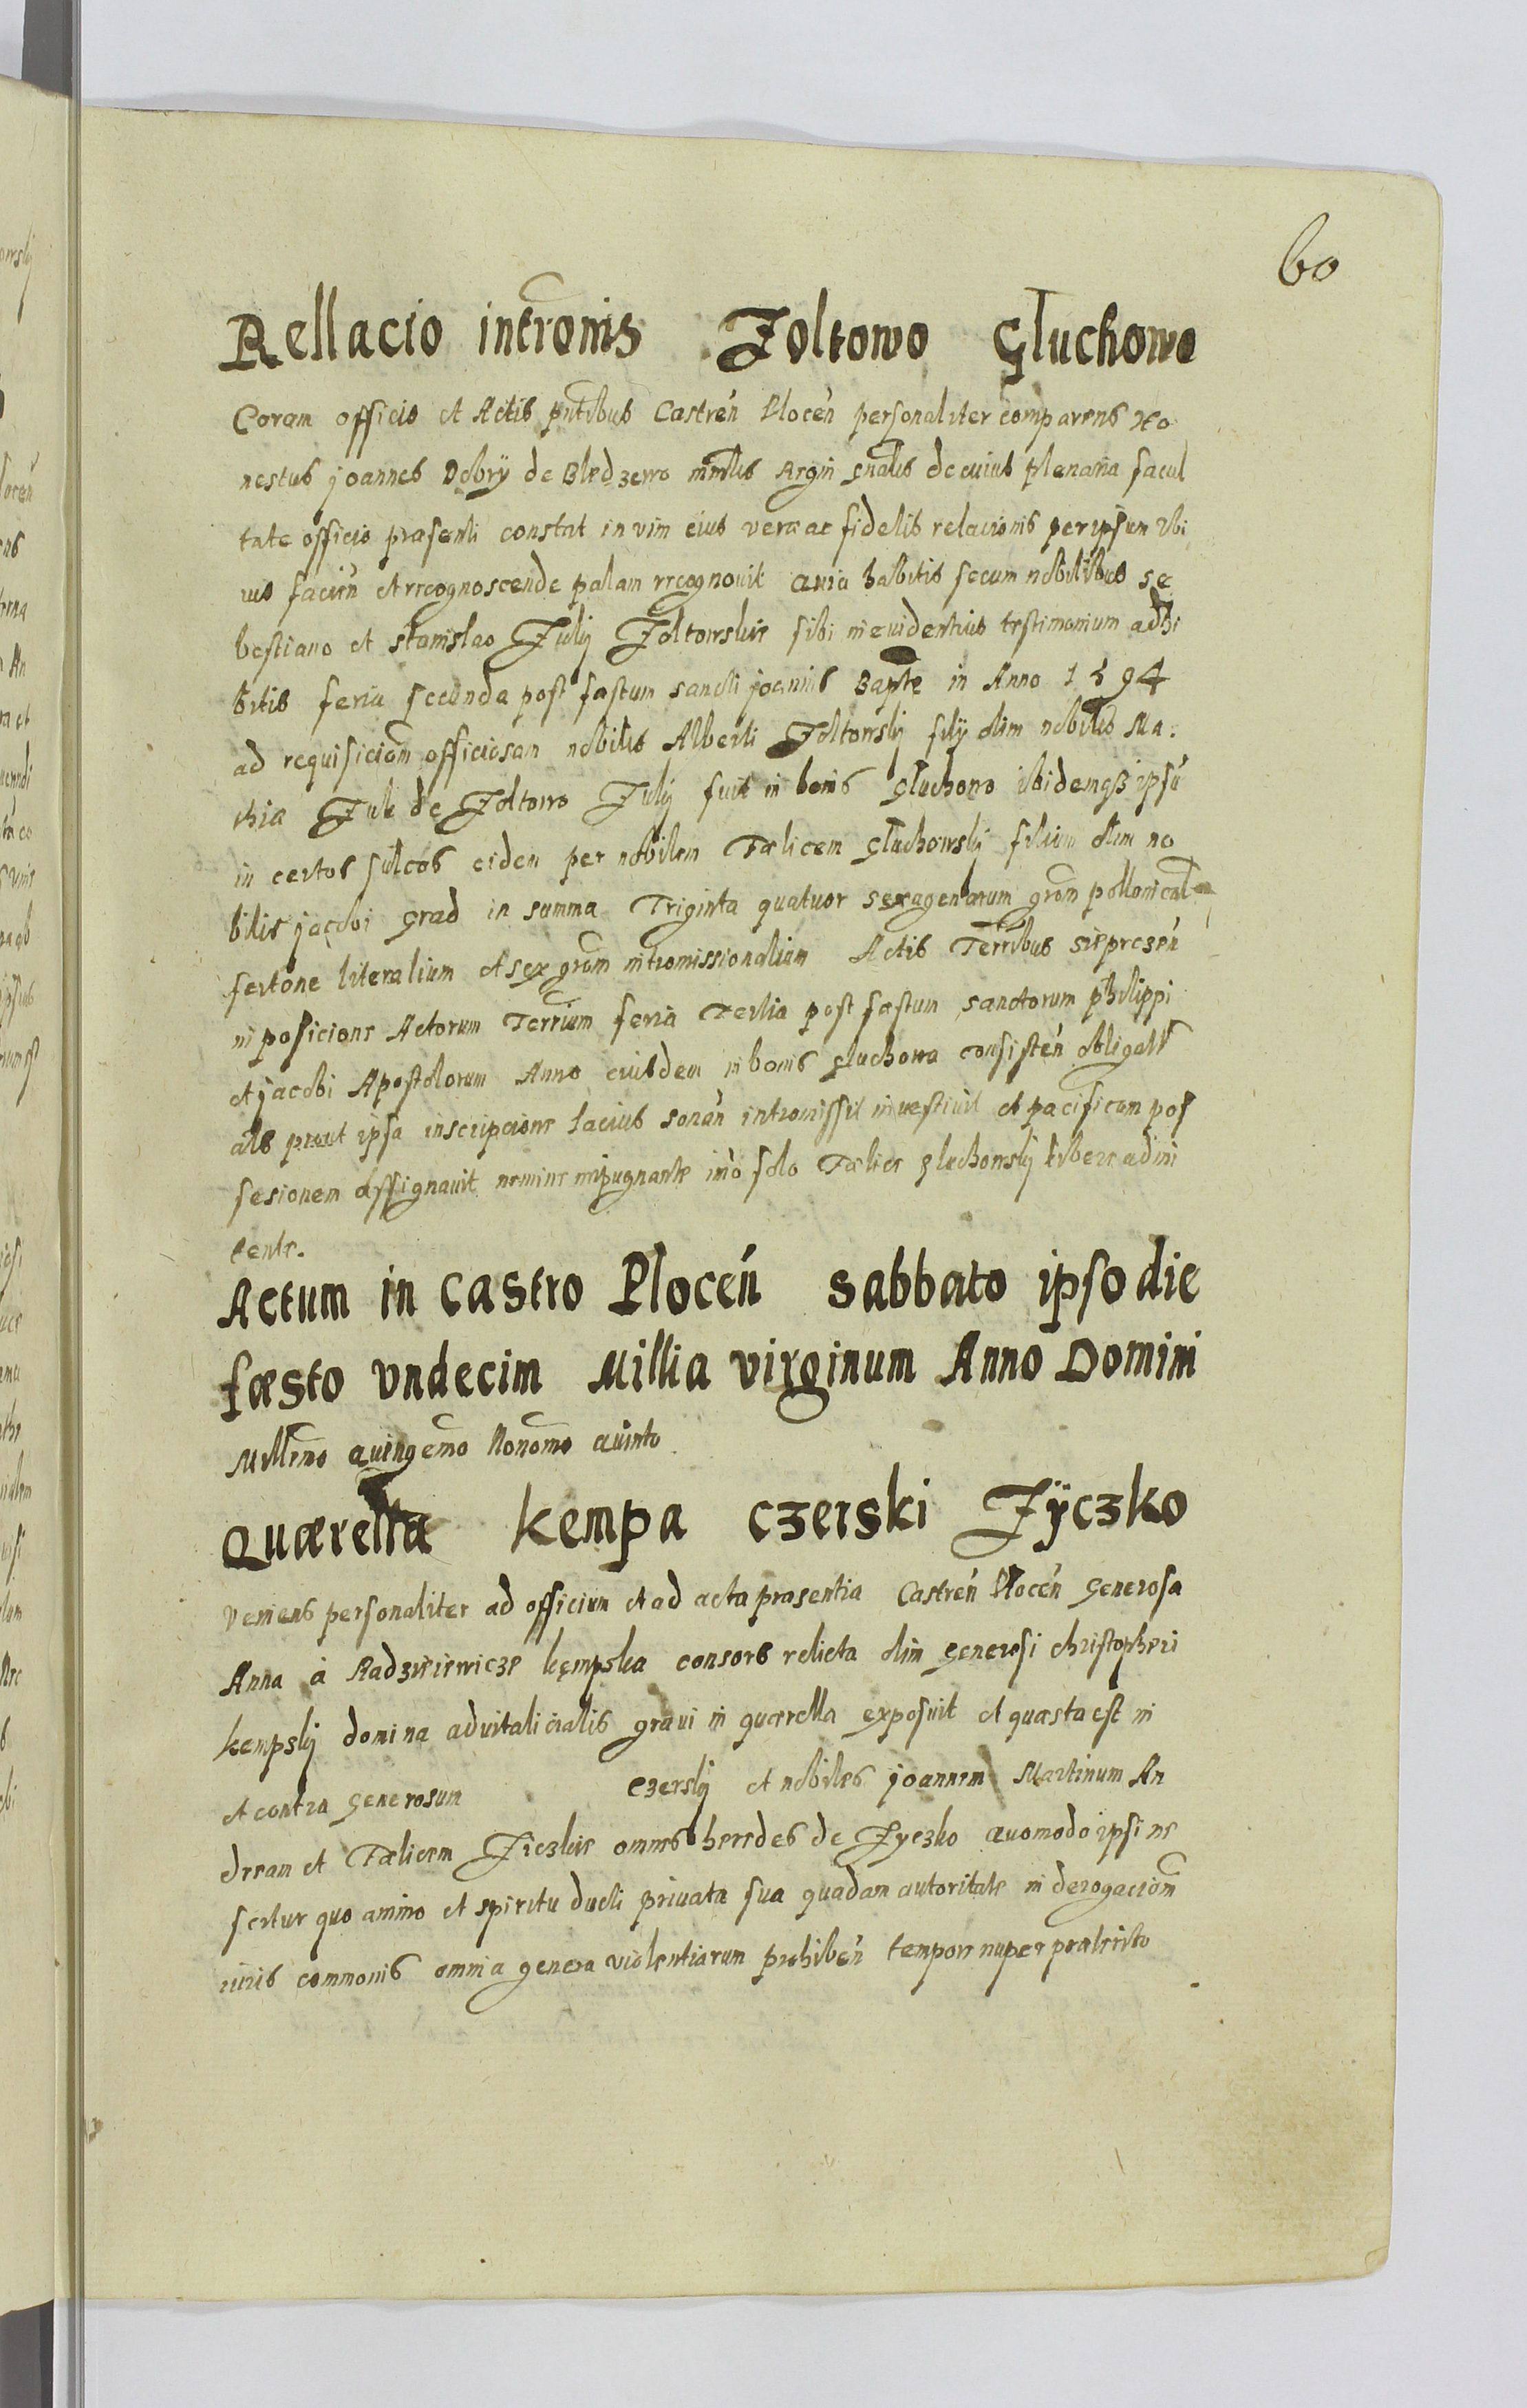 60
Rellacio intromis Zoltowo Gluchowo
Coram officio et Actis pntibus Castren̄ Plocen̄ personaliter comparens Ho
nestus joannes Dobrÿ de Bledzewo mnrlis Regni gnalis de cuius plenaria facul
tate officio præsenti constat in vim eius veræ ac fidelis relacionis per ipsum ibi
us facien̄ et recognoscende palam recognovit quia habitis secum nobilibus Se
bestiano et stanislao Julij Zoltowskie sibi in evidentius testimonium adhi
bitis feria secunda post fæstum sancti joannis Baptæ in Anno 1594
ad requisiciom officiosam nobilis Alberti Zoltowskij filij olim nobilis Ma.
thia Jule de Zoltowo Julij fuit in bonis Gluchowo ibidemqз ipsū
in certos sulcos eidem per nobilem Fælicem Gluchowskij filium olim no
bilis jacobi Grad in summa Triginta quatuor sexagenarum grom pollonical
fertone literalium et sex grom intromissionalium Actis Terribus siepræzen̄
in posicione Actorum Terrium feria Tertia post fæstum sanctorum philippi
et jacobi Apostolorum Anno eiusdem in bonis gluchowa consisten̄ obligatt
als prout ipsa inscripcione lacius sonan̄ intromissit investivit et pacificam pos
sesionem assignavit nemine impugnante imo solo Fælice gluchowskij libere admi
tente.
Actum in castro Plocen̄ sabbato ipso die
fæsto vndecim Millia virginum Anno Domini
Milleno quingemo Nonomo quinto
Quærella Kempa czerski Zÿczko
Veniens personaliter ad officium et ad acta præsentia Castren̄ Plocen̄ Generosa
Anna à Radziiewicze kempska consors relicta olim Generosi christopheri
kempskij domina advitalicialis gravi in quærella exposuit et quæsta est in
et contra Generosum czerskij et nobiles joannem Martinum An
dream et Fælicem Ziczkie omnes heredes de Zyczko quomodo ipsi ne
scitur quo animo et spiritu ducti privata sua quadam autoritate in derogaciom
iuris commonis omnia genera violentiarum prohiben̄ tempore nuper præterito